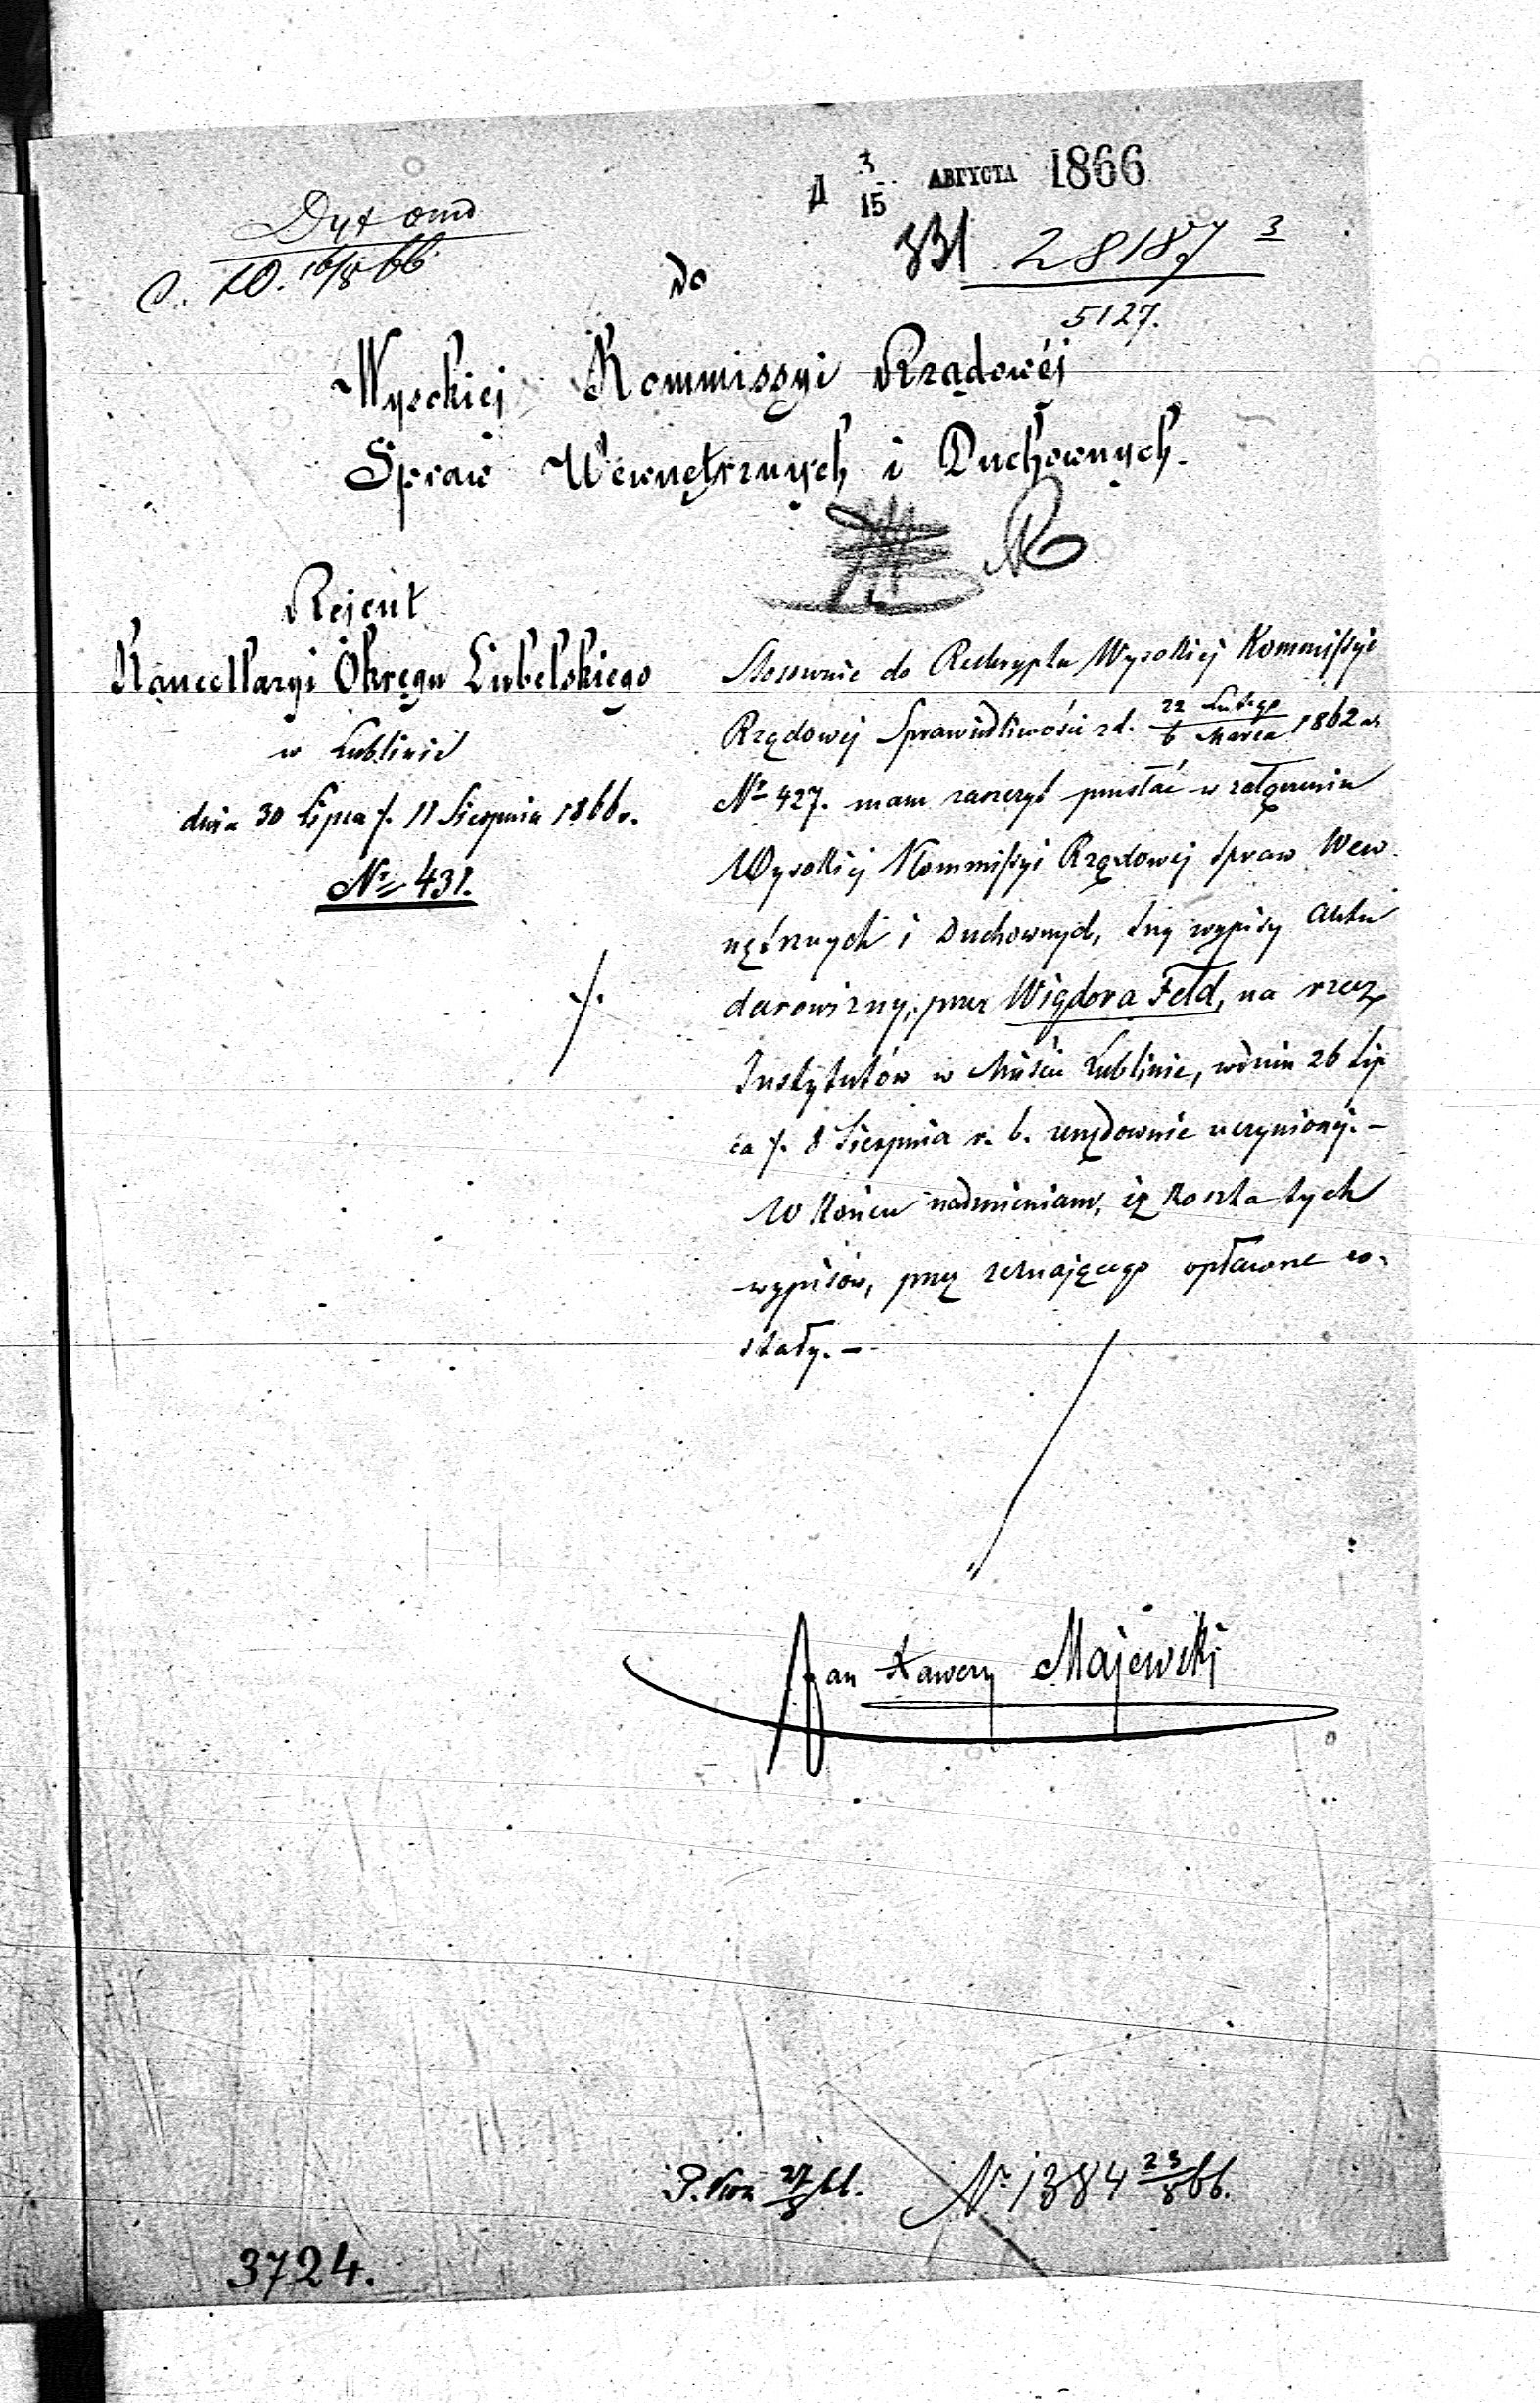 Д 3/15 АВГУСТА 1866
331 28187 3
5127.
16/8 66
Do
Wysokiej Kommissyi Rządowéj
Spraw Wewnętrznych i Duchownych.
Rejent
Kancellaryi Okręgu Lubelskiego
w Lublinie
dnia 30 Lipca /. 11 Sierpnia 1866 r.
Nr 431.
Stosownie do Reskryptu Wysokiej Kommissyi
Rządowej Sprawiedliwości z d. 22 Lutego/6 Marca 1862 r.
Nr 427. mam zaszczyt przesłać w załączeniu
Wysokiej Kommissyi Rządowej Spraw Wew
nętrznych i Duchownych, trzy wypisy Aktu
darowizny, przez Wigdora Feld, na rzecz
Instytutów w Mieście Lublinie, w dniu 26 Lip
ca /. 8 Sierpnia r. b. urzędownie uczynionej. –
W końcu nadmieniam, iż koszta tych
wypisów, przez zeznającego opłacone zo-
stały. –
Jan Xawery Majewski
Nr 1384 23/8 66.
3724.